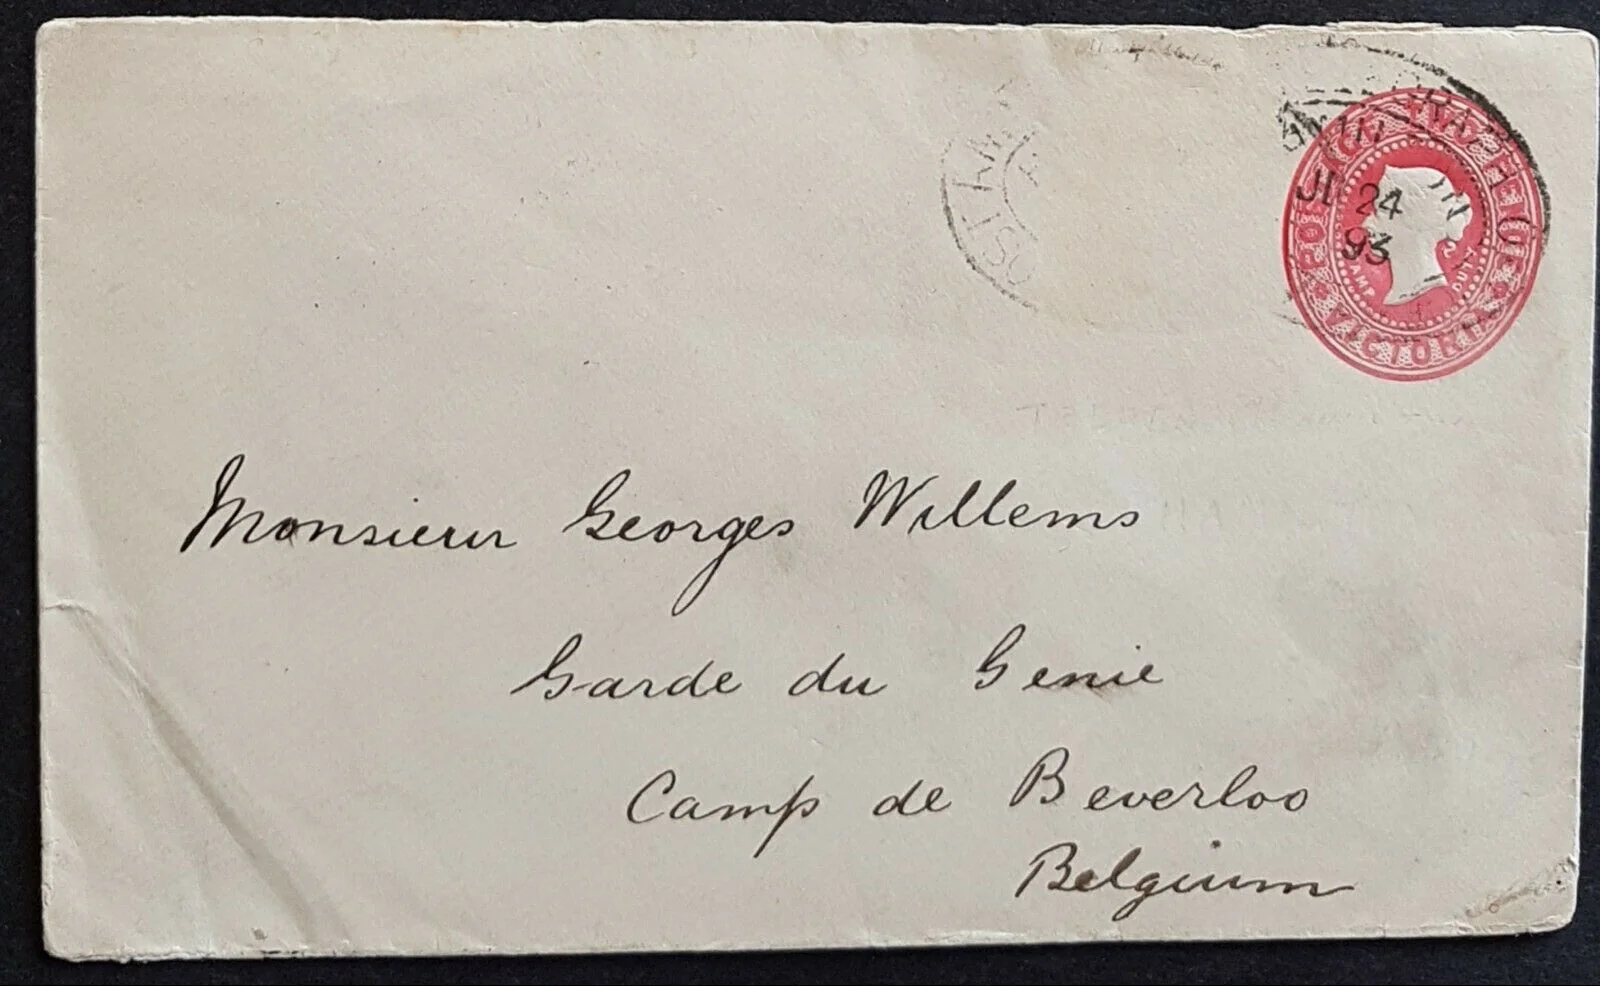 JL 24
93
STAMP DUTY
VICTORIA
Monsieur Georges Willems
Garde du Genie
Camp de Beverloo
Belgium